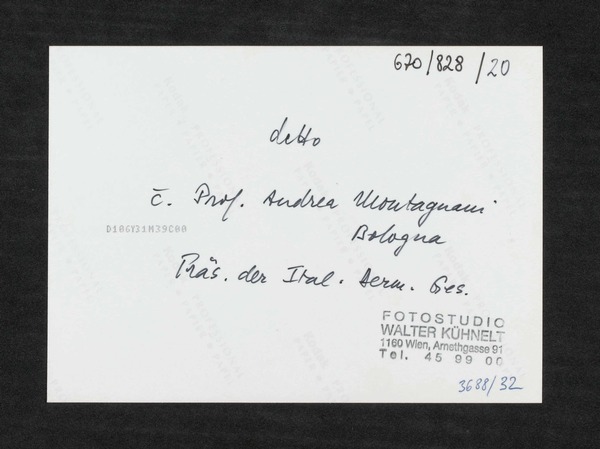 670/828/20
detto
č. Prof. Andrea Montagnani
Bologna
D18GY31M39C00
Präs. der Ital. Derm. Ges.
FOTOSTUDIO
WALTER KÜHNELT
1160 Wien, Arnethgasse 91
Tel. 45 99 00
3688/32